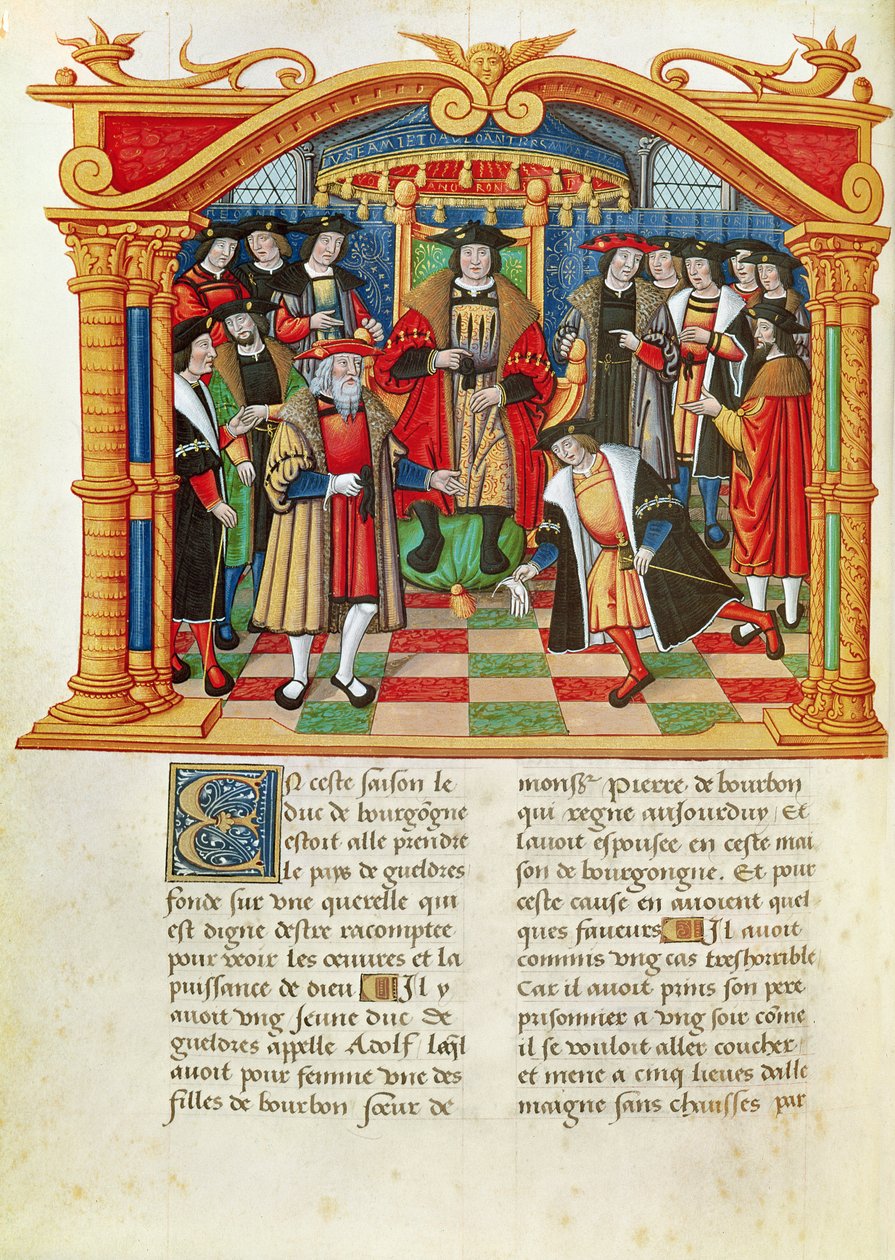 En ceste saison le
duc de bourgōgne
estoit alle prendre
le pays de gueldres
fonde sur vne querelle qui
est digne destre racomptee
pour veoir les oeuures et la
puissance de dieu Il y
auoit vng jeune duc de
gueldres appelle Adolf leq̄l
auoit pour femme vne des
filles de bourbon soeur de
monsr Pierre de bourbon
qui regne aujourduy Et
lauoit espousee en ceste mai
son de bourgongne. Et pour
ceste cause en auoient quel
ques faueurs Il auoit
commis vng cas treshorrible
Car il auoit prins son pere
prisonnier a vng soir cōme
il se vouloit aller coucher
et mene a cinq lieues dalle
maigne sans chausses par